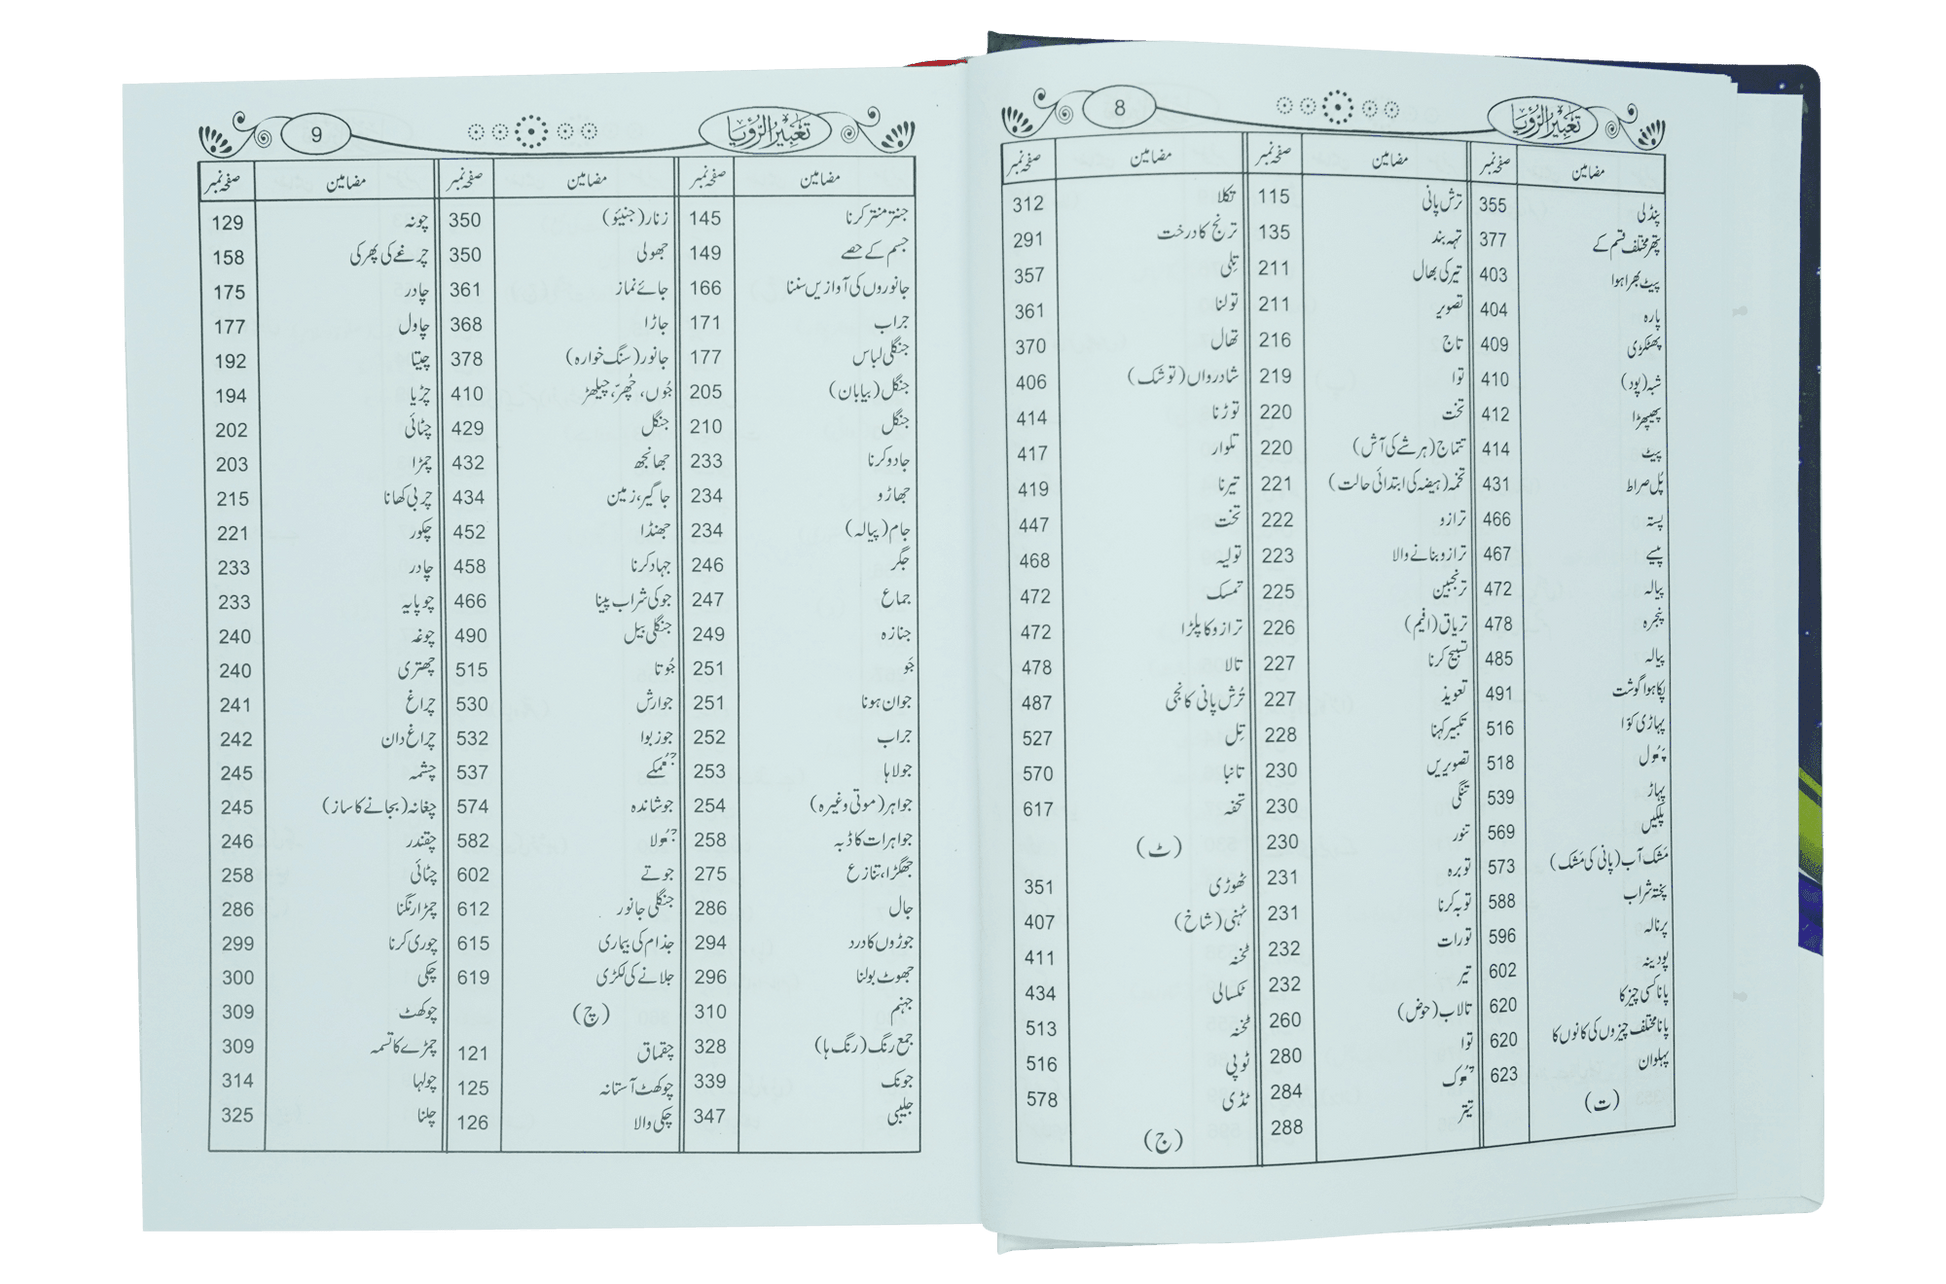 تعبیر الرؤیا
8
مضامین صفحہ نمبر
پنڈلی 355
پتھر مختلف قسم کے 377
پیٹ بھرا ہوا 403
پارہ 404
پھٹکڑی 409
شبہ (پود) 410
پھیپھڑا 412
پیٹ 414
پُل صراط 431
پستہ 466
پیسے 467
پیالہ 472
پنجرہ 478
پیالہ 485
پکا ہوا گوشت 491
پہاڑی کوّا 516
پھول 518
پہاڑ 539
پلکیں 569
مَشک آب (پانی کی مَشک) 573
پختہ شراب 588
پرنالہ 596
پودینہ 602
پانا کسی چیز کا 620
پانا مختلف چیزوں کی کانوں کا 620
پہلوان 623
(ت)
مضامین صفحہ نمبر
ترش پانی 115
تہہ بند 135
تیر کی بھال 211
تصویر 211
تاج 216
توا 219
تخت 220
تتماج (ہر شے کی آش) 220
تخمہ (ہیضہ کی ابتدائی حالت) 221
ترازو 222
ترازو بنانے والا 223
ترنجبین 225
تریاق (افیم) 226
تسبیح کرنا 227
تعویذ 227
تکبیر کہنا 228
تصویریں 230
تنگی 230
تنور 230
توبرہ 231
توبہ کرنا 231
تورات 232
تیر 232
تالاب (حوض) 260
توا 280
تھوک 284
تیتر 288
مضامین صفحہ نمبر
تکلا 312
ترنج کا درخت 291
تِلی 357
تولنا 361
تھال 370
شادرواں (توشک) 406
توڑنا 414
تلوار 417
تیرنا 419
تخت 447
تولیہ 468
تمسک 472
ترازو کا پلڑا 472
تالا 478
تُرش پانی کانجی 487
تِل 527
تانبا 570
تحفہ 617
(ٹ)
ٹھوڑی 351
ٹہنی (شاخ) 407
ٹخنہ 411
ٹکسالی 434
ٹخنہ 513
ٹوپی 516
ٹڈی 578
(ج)
تعبیر الرؤیا
9
مضامین صفحہ نمبر
جنتر منتر کرنا 145
جسم کے حصے 149
جانوروں کی آوازیں سننا 166
جراب 171
جنگلی لباس 177
جنگل (بیابان) 205
جنگل 210
جادو کرنا 233
جھاڑو 234
جام (پیالہ) 234
جگر 246
جماع 247
جنازہ 249
جَو 251
جوان ہونا 251
جراب 252
جولاہا 253
جواہر (موتی وغیرہ) 254
جواہرات کا ڈبہ 258
جھگڑا، تنازع 275
جال 286
جوڑوں کا درد 294
جھوٹ بولنا 296
جہنم 310
جمع رنگ (رنگ ہا) 328
جونک 339
جلیبی 347
مضامین صفحہ نمبر
زنار (جنیئو) 350
جھولی 350
جائے نماز 361
جاڑا 368
جانور (سنگ خوارہ) 378
جُوں، چُھر، چیلھڑ 410
جنگل 429
جھانجھ 432
جاگیر، زمین 434
جھنڈا 452
جہاد کرنا 458
جو کی شراب پینا 466
جنگلی بیل 490
جُوتا 515
جوارش 530
جوز بوا 532
جھمکے 537
جوشاندہ 574
جھولا 582
جوتے 602
جنگلی جانور 612
جذام کی بیماری 615
جلانے کی لکڑی 619
(چ)
چقماق 121
چوکھٹ آستانہ 125
چکی والا 126
مضامین صفحہ نمبر
چونہ 129
چرغے کی پھرکی 158
چادر 175
چاول 177
چیتا 192
چڑیا 194
چٹائی 202
چمڑا 203
چربی کھانا 215
چکور 221
چادر 233
چوپایہ 233
چوغہ 240
چھتری 240
چراغ 241
چراغ دان 242
چشمہ 245
چغانہ (بجانے کا ساز) 245
چقندر 246
چٹائی 258
چمڑا رنگنا 286
چوری کرنا 299
چکی 300
چوکھٹ 309
چمڑے کا تسمہ 309
چولہا 314
چلنا 325